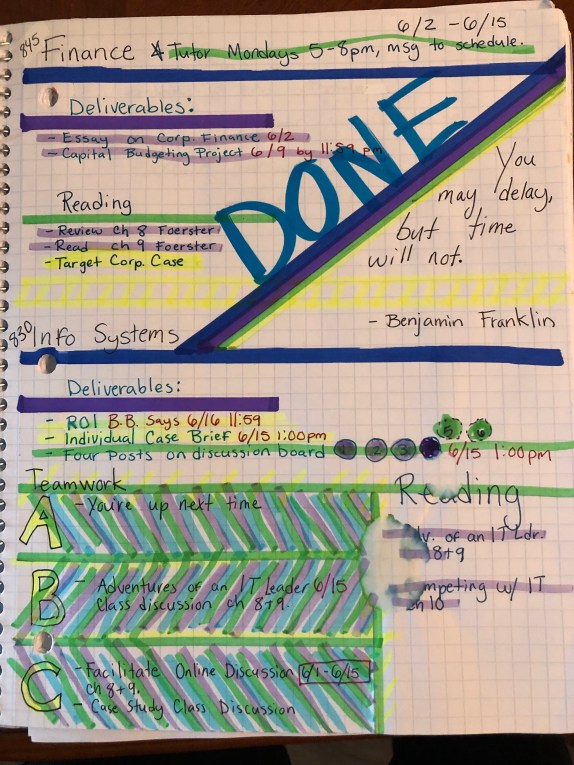 6/2 - 6/15
845 Finance * Tutor Mondays 5-8pm, msg to schedule.
Deliverables:
- Essay on Corp. Finance 6/2
- Capital Budgeting Project 6/9 by 11:59 pm
DONE
Reading
- Review ch 8 Foerster
- Read ch 9 Foerster
- Target Corp. Case
You
may delay,
but time
will not.
- Benjamin Franklin
830 Info Systems
Deliverables:
- ROI B.B. Says 6/16 11:59
- Individual Case Brief 6/15 1:00pm
- Four Posts on discussion board 1 2 3 5 6 6/15 1:00pm
Teamwork
A - You're up next time
B - Adventures of an IT Leader 6/15
Class discussion ch 8+9.
C - Facilitate Online Discussion 6/1-6/15
ch 8+9.
- Case Study Class Discussion
Reading
of an IT Ldr.
8+9
w/ IT
ch 10